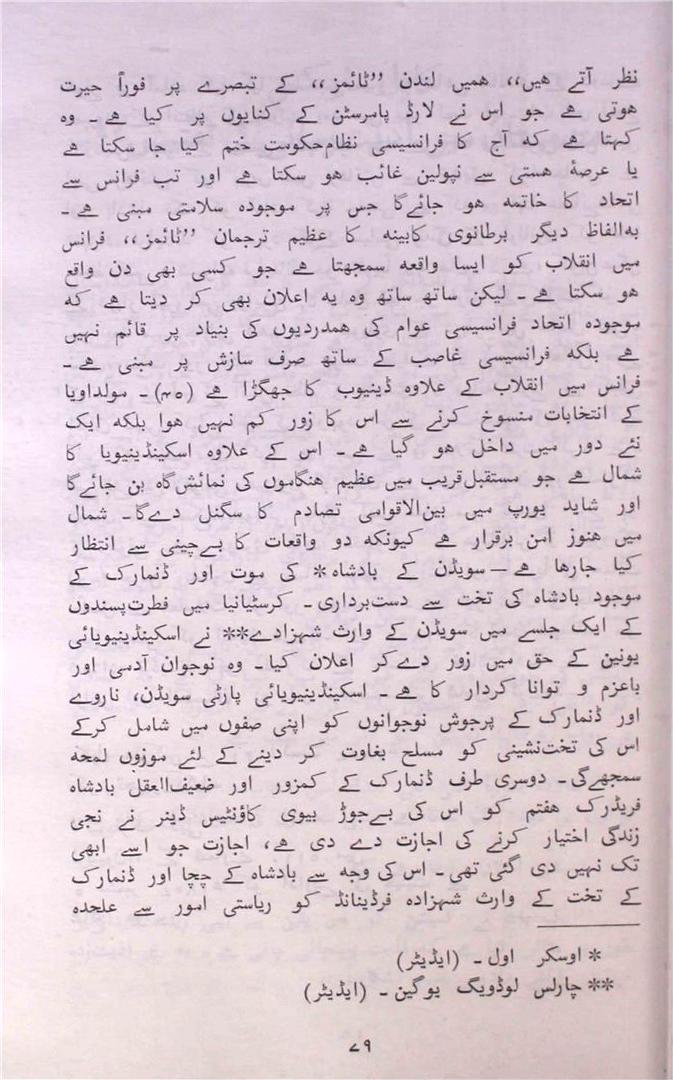 نظر آتے هیں،، همیں لندن ’’ٹائمز،، کے تبصرے پر فوراً حیرت
هوتی هے جو اس نے لارڈ پامرسٹن کے کنایوں پر کیا هے ـ وه
کہتا هے که آج کا فرانسیسی نظام‌حکومت ختم کیا جا سکتا هے
یا عرصۂ هستی سے نپولین غائب هو سکتا هے اور تب فرانس سے
اتحاد کا خاتمه هو جائےگا جس پر موجوده سلامتی مبنی هے ـ
به‌الفاظ دیگر برطانوی کابینه کا عظیم ترجمان ’’ٹائمز،، فرانس
میں انقلاب کو ایسا واقعه سمجھتا هے جو کسی بھی دن واقع
هو سکتا هے ـ لیکن ساتھ ساتھ وه یه اعلان بھی کر دیتا هے که
موجوده اتحاد فرانسیسی عوام کی همدردیوں کی بنیاد پر قائم نہیں
هے بلکه فرانسیسی غاصب کے ساتھ صرف سازش پر مبنی هے ـ
فرانس میں انقلاب کے علاوه ڈینیوب کا جھگڑا هے (۴۵) ـ مولداویا
کے انتخابات منسوخ کرنے سے اس کا زور کم نہیں هوا بلکه ایک
نئے دور میں داخل هو گیا هے ـ اس کے علاوه اسکینڈینیویا کا
شمال هے جو مستقبل‌قریب میں عظیم هنگاموں کی نمائش‌گاه بن جائےگا
اور شاید یورپ میں بین‌الاقوامی تصادم کا سگنل دےگا ـ شمال
میں هنوز امن برقرار هے کیونکه دو واقعات کا بےچینی سے انتظار
کیا جارها هے — سویڈن کے بادشاه* کی موت اور ڈنمارک کے
موجود بادشاه کی تخت سے دست‌برداری ـ کرسٹیانیا میں فطرت‌پسندوں
کے ایک جلسے میں سویڈن کے وارث شہزادے** نے اسکینڈینیویائی
یونین کے حق میں زور دےکر اعلان کیا ـ وه نوجوان آدمی اور
باعزم و توانا کردار کا هے ـ اسکینڈینیویائی پارٹی سویڈن، ناروے
اور ڈنمارک کے پرجوش نوجوانوں کو اپنی صفوں میں شامل کرکے
اس کی تخت‌نشینی کو مسلح بغاوت کر دینے کے لئے موزوں لمحه
سمجھےگی ـ دوسری طرف ڈنمارک کے کمزور اور ضعیف‌العقل بادشاه
فریڈرک هفتم کو اس کی بےجوڑ بیوی کاؤنٹیس ڈینر نے نجی
زندگی اختیار کرنے کی اجازت دے دی هے، اجازت جو اسے ابھی
تک نہیں دی گئی تھی ـ اس کی وجه سے بادشاه کے چچا اور ڈنمارک
کے تخت کے وارث شہزاده فرڈینانڈ کو ریاستی امور سے علحده
* اوسکر اول ـ (ایڈیٹر)
** چارلس لوڈویگ یوگین ـ (ایڈیٹر)
۷۹